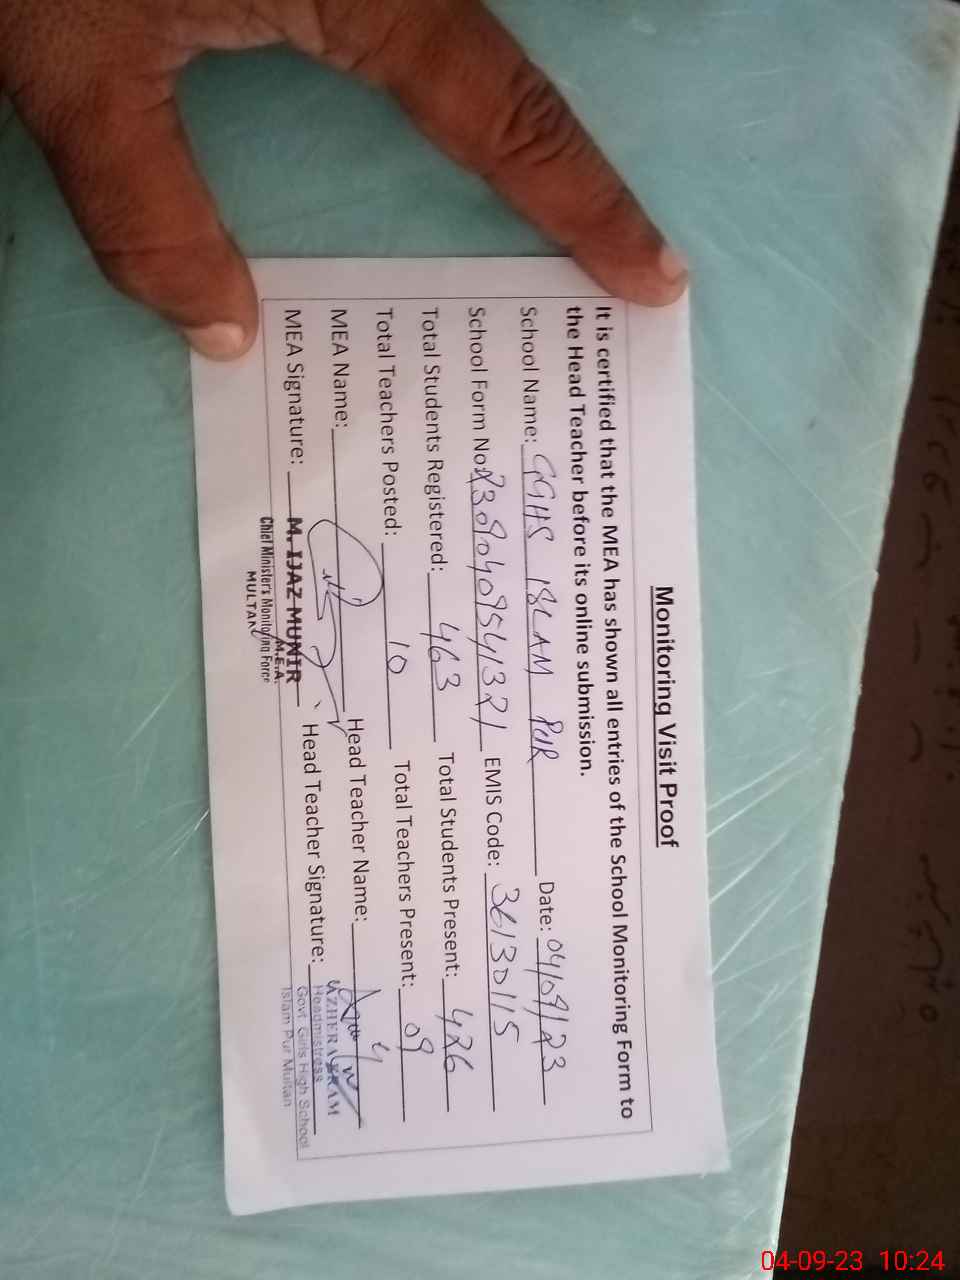 Monitoring Visit Proof
It is certified that the MEA has shown all entries of the School Monitoring Form to
the Head Teacher before its online submission.
School Name: GGHS ISLAM PUR Date: 04/09/23
School Form No: 23090409541321 EMIS Code: 36130115
Total Students Registered: 463 Total Students Present: 426
Total Teachers Posted: 10 Total Teachers Present: 09
MEA Name: Head Teacher Name:
MEA Signature: Head Teacher Signature:
M. IJAZ MUNIR
M.E.A.
Chief Minister's Monitoring Force
MULTAN
Headmistress
Govt. Girls High School
Islam Pur Multan
04-09-23 10:24